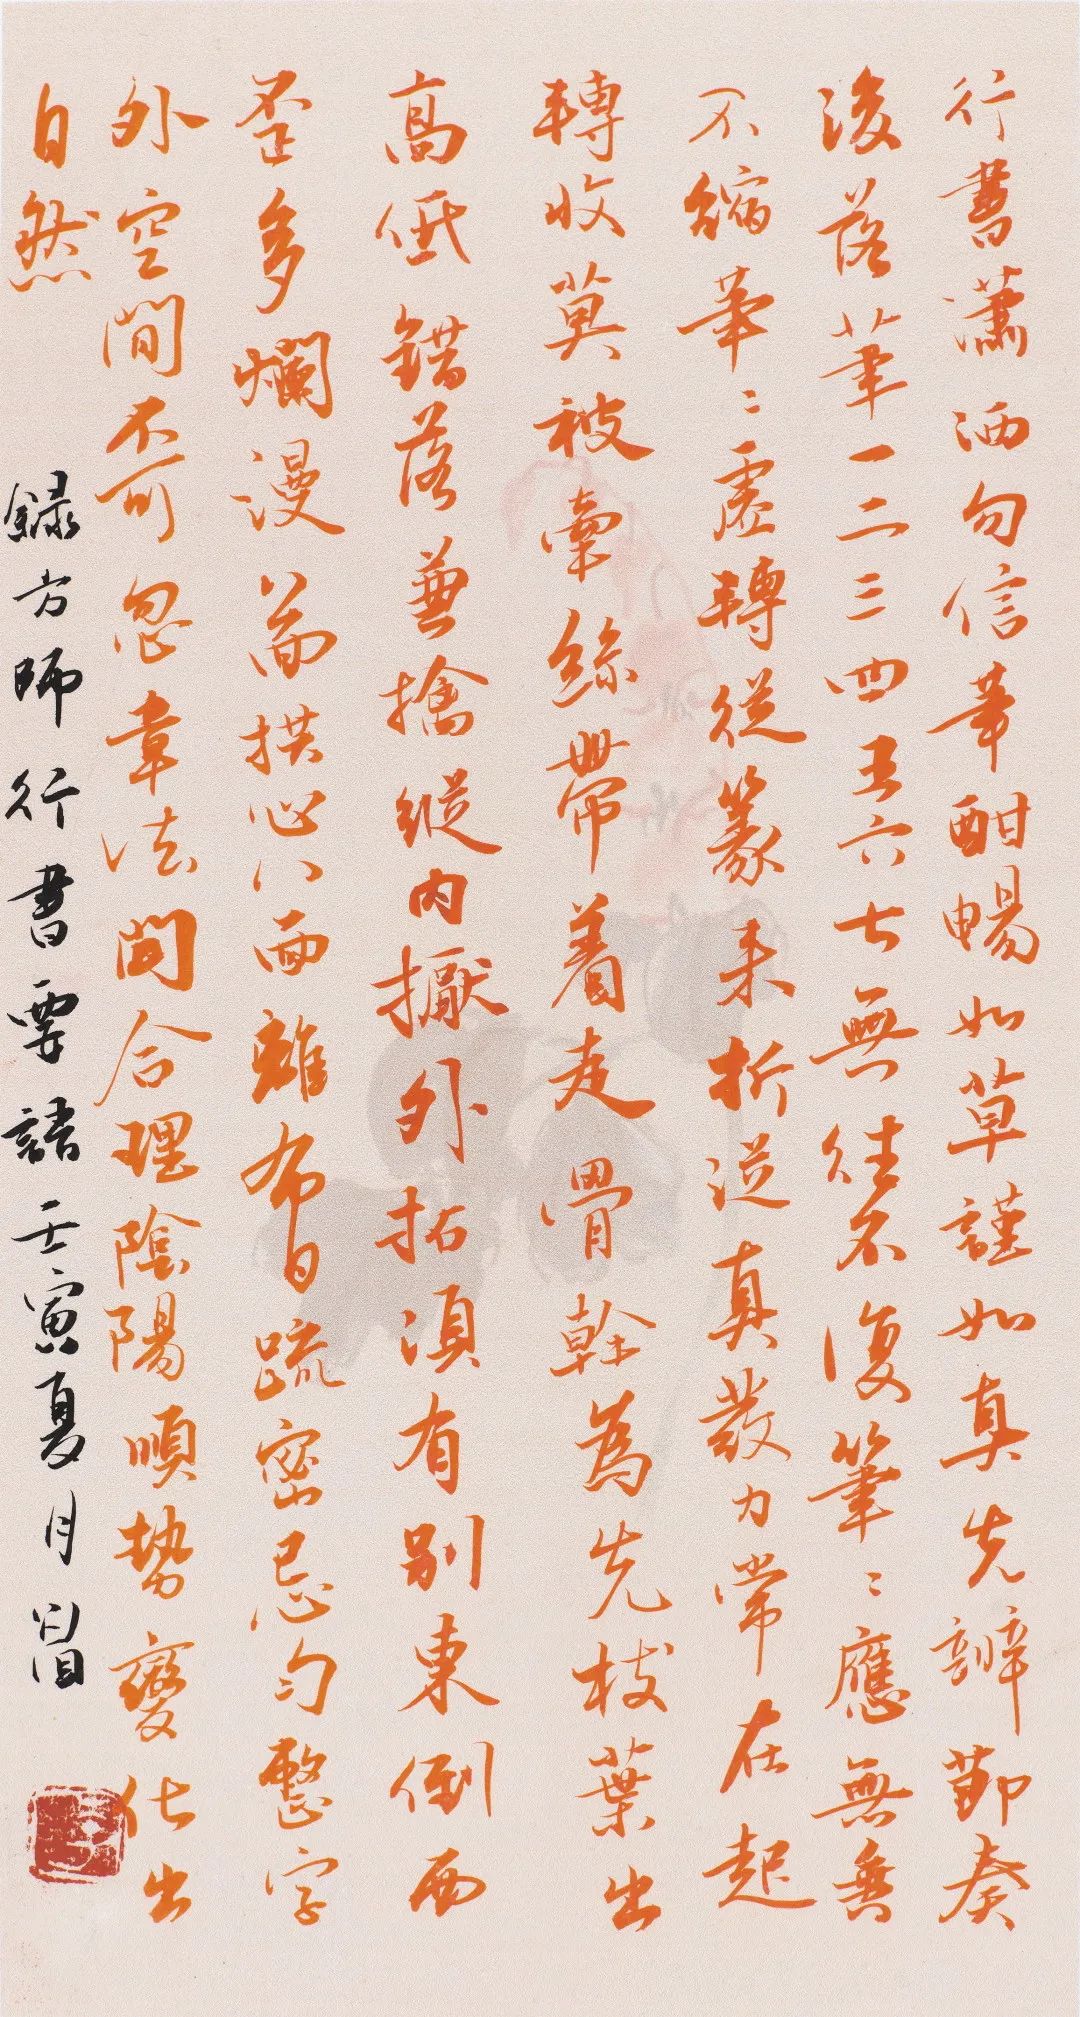 行書瀟洒勿信筆酣暢如草謹如真先辨節奏
後落筆一二三四五六七無往不復筆〻應無垂
不縮筆〻虛轉從篆來折從真發力常在起
轉收莫被牽絲帶着走骨幹為先枝葉出
高低錯落兼擒縱內擫外拓須有別東倒西
歪多爛漫前拱心八面離布白疏密忌勻整字
外空間不可忽章法開合理陰陽順勢變化出
自然
錄方師行書要諸壬寅夏月